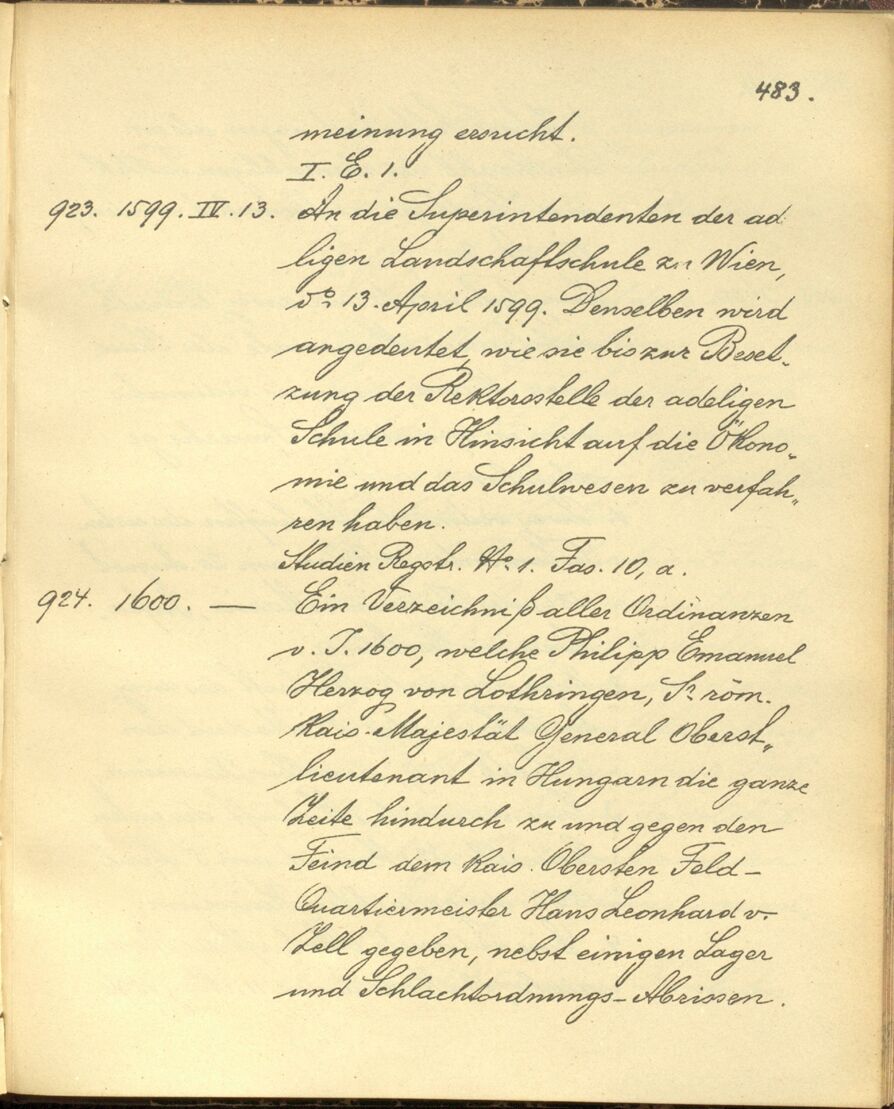 483.
meinung ersucht.
I. E. 1.
923. 1599. IV. 13. An die Superintendenten der ad
ligen Landschaftschule zu Wien,
dº 13. April 1599. Denselben wird
angedeutet, wie sie bis zur Beset„
zung der Rektorsstelle der adeligen
Schule in Hinsicht auf die Ökono„
mie und das Schulwesen zu verfah„
ren haben.
Studien Regstr. Nº 1. Fas. 10, a.
924. 1600. — Ein Verzeichniß aller Ordinanzen
v. J. 1600, welche Philipp Emanuel
Herzog von Lothringen, Sr röm.
Kais. Majestät General Oberst„
lieutenant in Hungarn die ganze
Zeite hindurch zu und gegen den
Feind dem Kais. Obersten Feld-
Quartiermeister Hans Leonhard v.
Zell gegeben, nebst einigen Lager
und Schlachtordnungs-Abrissen.